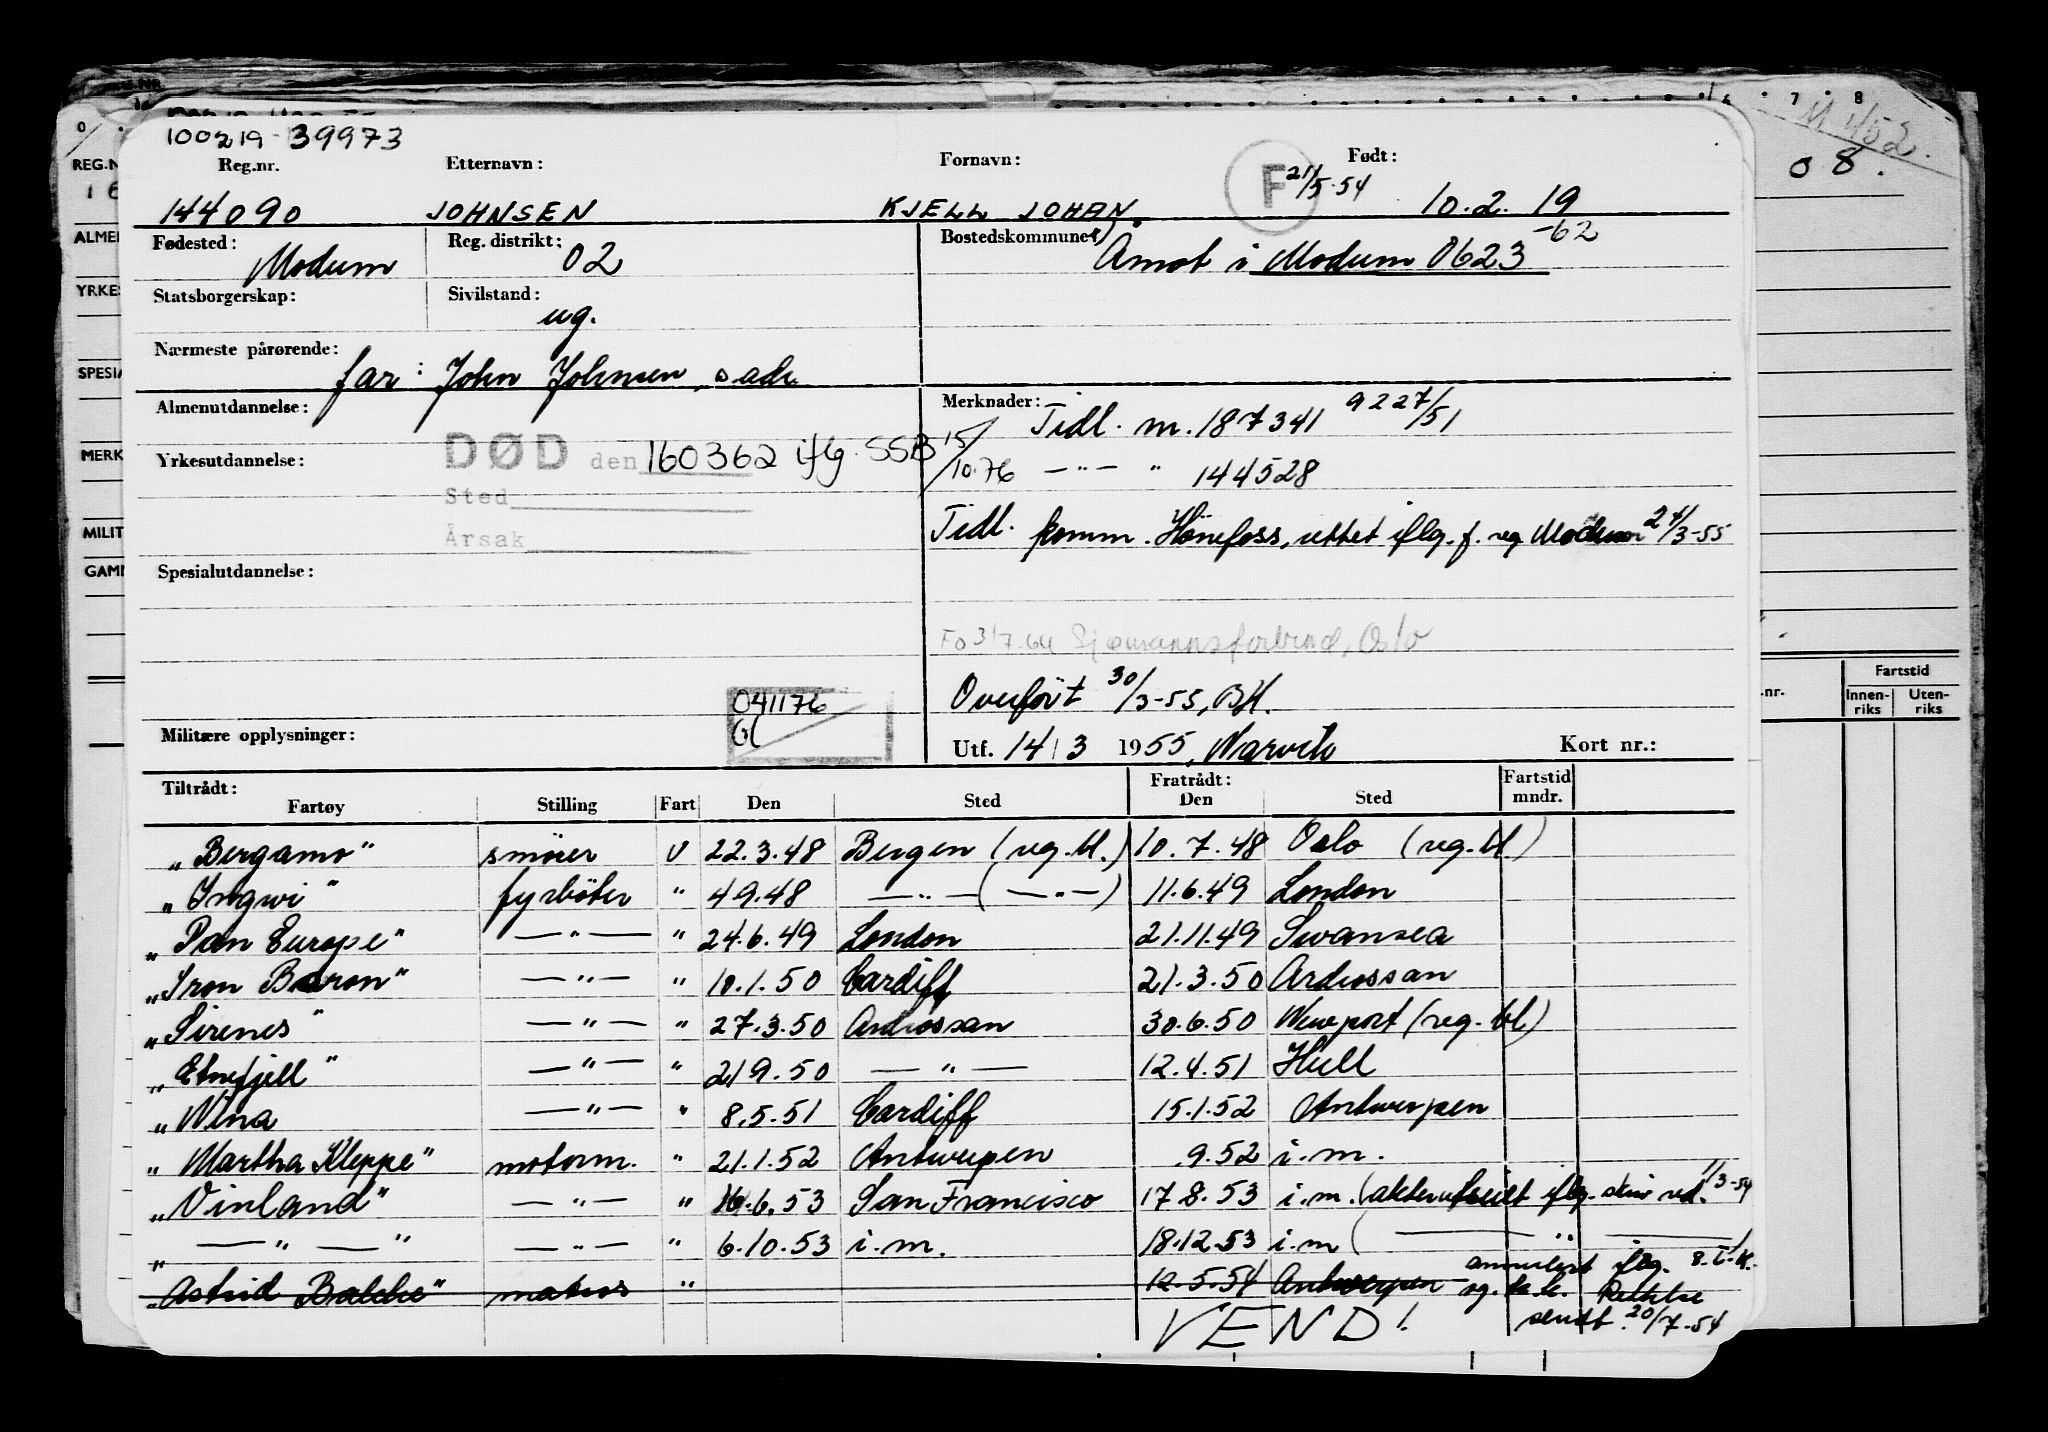 100219 39973
Reg.nr. Etternavn: Fornavn: Født:
144090 JOHNSEN KJELL JOHAN F 21/5.54 10.2.19
Fødested: Modum Reg. distrikt: 02 Bostedskommune: Åmot i Modum 0623 -62
Statsborgerskap: Sivilstand: ug.
Nærmeste pårørende: far: John Johnsen, s adr.
Almenutdannelse: Merknader: Tidl. m. 187341 9227/51
Yrkesutdannelse: DØD den 160362 iflg. SSB 15/10.76 — " — " 144528
Sted
Årsak
Tidl. komm. Hönefoss, rettet iflg. f. reg Modum 24/3-55
Spesialutdannelse:
Fo 31/7.64 Sjømannsforbund, Oslo
041176
Overfört 30/3-55, BH.
Militære opplysninger: Utf. 14/3 1955, Kort nr.:
Tiltrådt: Fratrådt: Fartstid
Fartøy Stilling Fart Den Sted Den Sted mndr.
"Bergamo" smörer U 22.3.48 Bergen (reg.bl.) 10.7.48 Oslo (reg.bl.)
"Ingwi" fyrböter " 4 9.48 — " — ( — " — ) 11.6.49 London
"Pan Europe" — " — " 24.6.49 London 21.11.49 Swansea
"Iron Baron" — " — " 10.1.50 Cardiff 21.3.50 Ardrossan
"Sirenes" — " — " 27.3.50 Ardrossan 30.6.50 Newport (reg.bl.)
"Etnefjell" — " — " 21 9.50 — " — 12.4.51 Hull
"Nina — " — " 8.5.51 Cardiff 15.1.52 Antwerpen
"Martha Kleppe" motorm. " 21.1.52 Antwerpen .9.52 i.m.
"Vinland" — " — " 16.6.53 San Francisco 17.8.53 i.m. (akterutseilt iflg. skriv red. 1/3-54
" — " — " — " — " 6.10.53 i.m. 18.12.53 i.m ( — " — )
"Astrid Bakke" matros " 12.5.54 Antwerpen annulert iflg.
og. Rettelse
sendt. 20/7-54
VEND!
REG.N
ALMEN
YRKES
SPESIA
MERK
MILIT
GAMM
0 7 8
08.
M 1/52.
Fartstid
.nr. Innenriks Utenriks